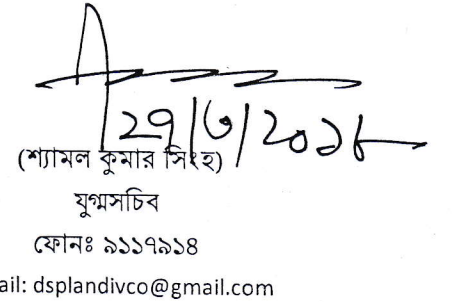 ২৭/৬/২০১৮
(শ্যামল কুমার সিংহ)
যুগ্মসচিব
ফোনঃ ৯১১৭৯১৪
ail: dsplandivco@gmail.com